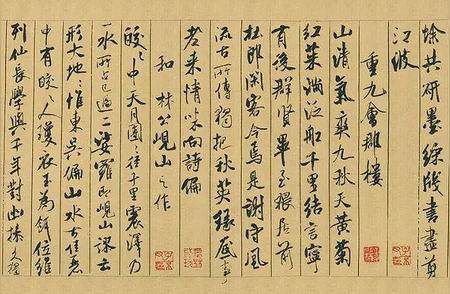 蜍共研墨綵牋書盡剪
江波
重九會郡樓
山清氣爽九秋天黃菊
紅茱滿泛船千里結言寧
有後群賢畢至猥居前
杜郎閑客今焉是謝守風
流古所傳獨把秋英緣底事
老來情味向詩偏
和林公峴山之作
皎々中天月團々徑千里震澤乃
一水所占已過二娑羅即峴山謬云
形大地々惟東吳偏山水古佳麗
中有皎々人瓊衣玉為餌位維
列仙長學與千年對幽操久獨